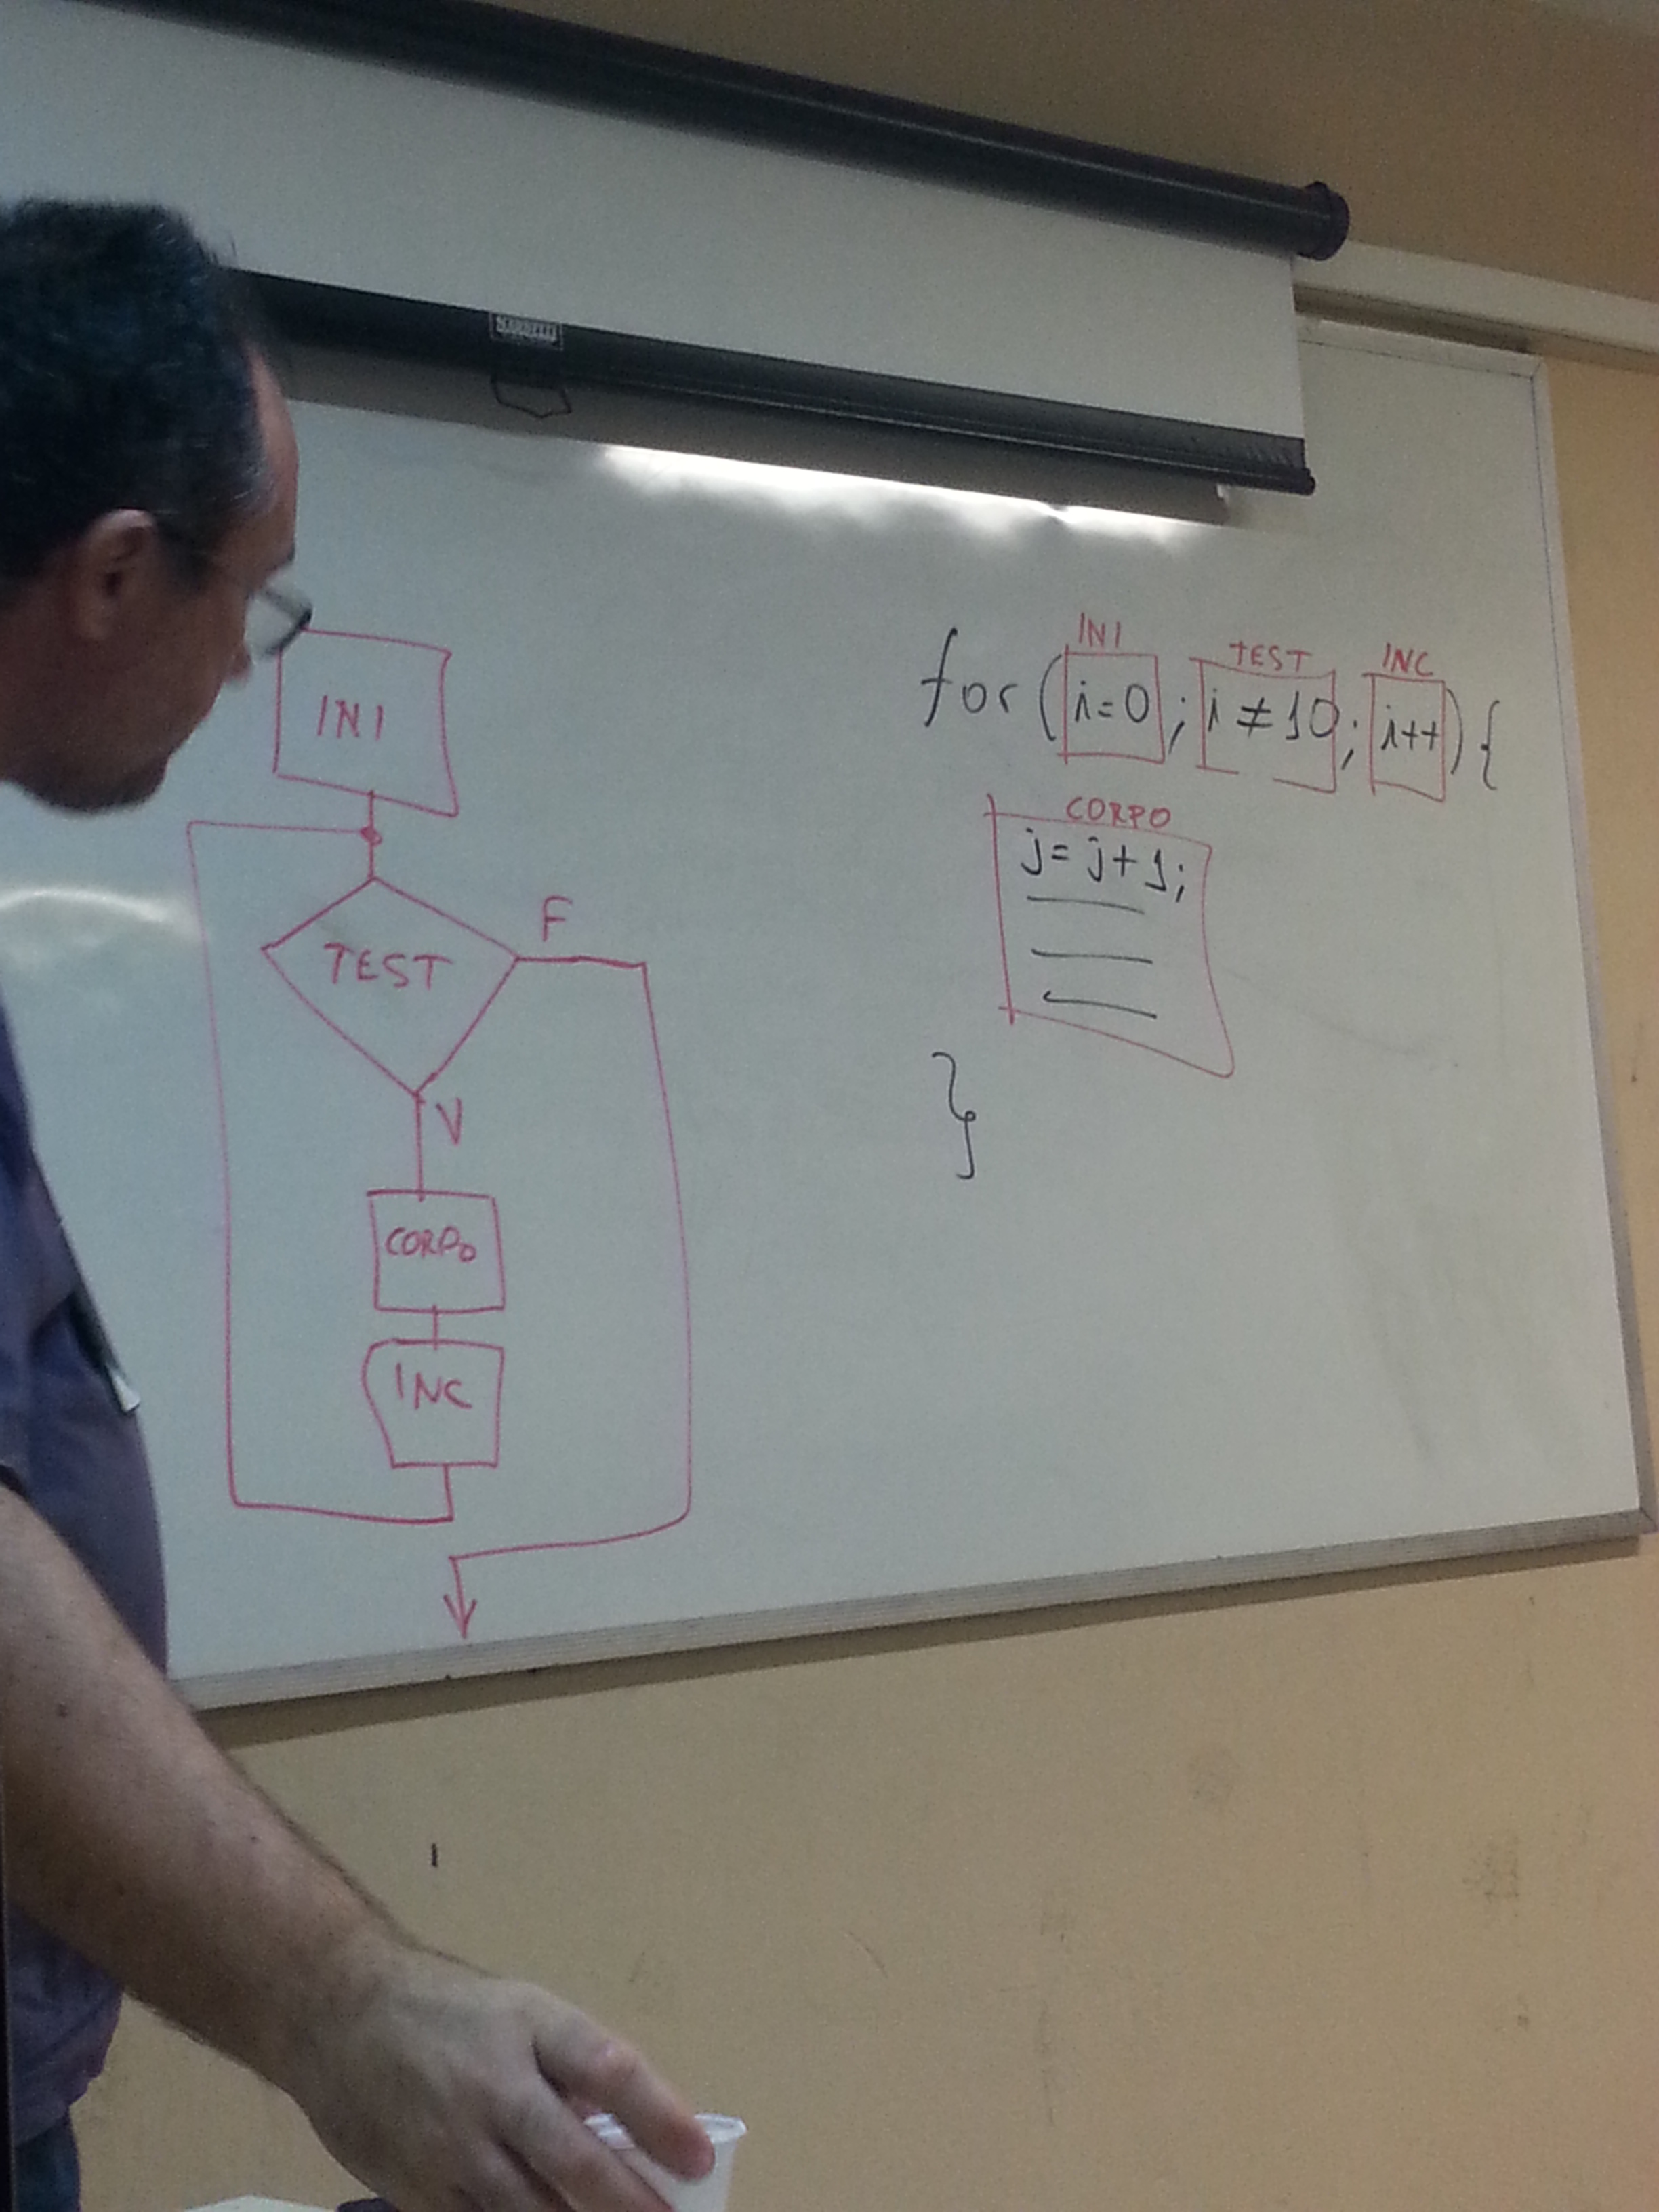 INI
TEST
F
V
CORPO
INC
INI TEST INC
for (i=0; i≠10; i++) {
CORPO
j= j+1;
}